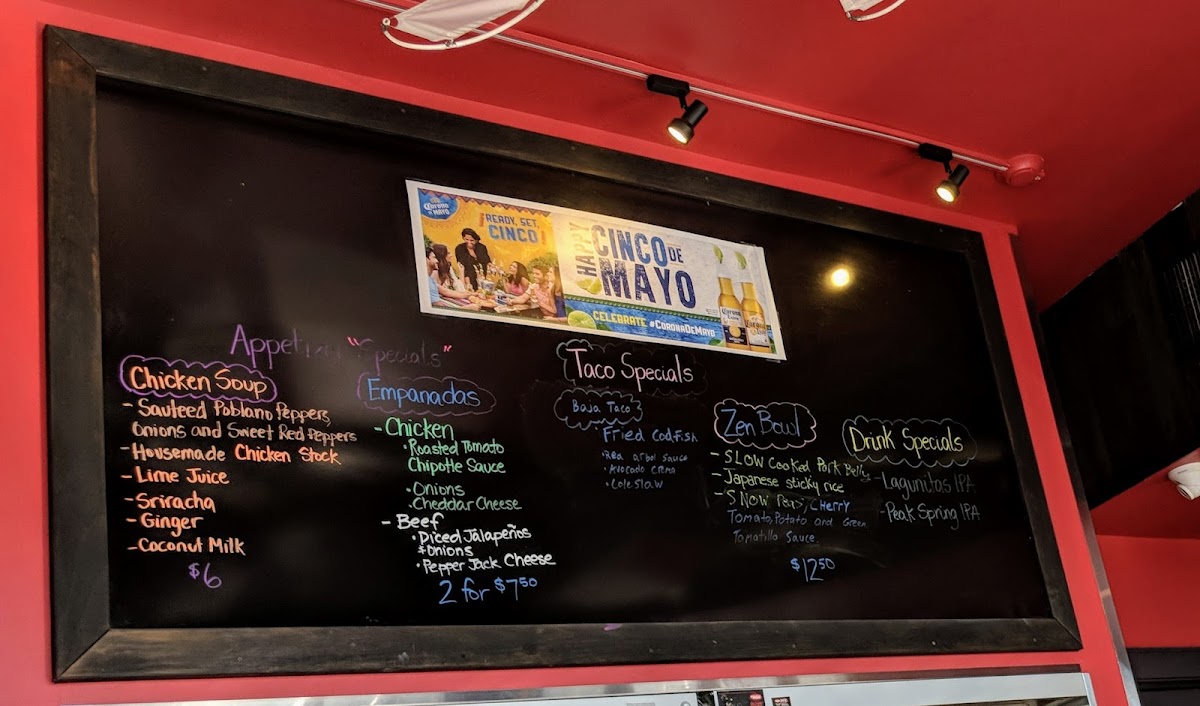 Corona de Mayo
¡READY, SET, CINCO!
HAPPY
CINCO DE
MAYO
CELEBRATE #CORONADEMAYO
Appetizer "Specials"
Chicken Soup
- Sauteed Poblano Peppers,
Onions and Sweet Red Peppers
- Housemade Chicken Stock
- Lime Juice
- Sriracha
- Ginger
- Coconut Milk
$6
Empanadas
- Chicken
• Roasted Tomato
Chipotle Sauce
• Onions
• Cheddar Cheese
- Beef
• Diced Jalapeños
+ Onions
• Pepper Jack Cheese
2 for $7.50
Taco Specials
Baja Taco
Fried Codfish
• Red arbol sauce
• Avocado crema
• Coleslaw
Zen Bowl
- Slow Cooked Pork Belly
- Japanese sticky rice
- Snow Peas, Cherry
Tomato, Potato and Green
Tomatillo Sauce.
$12.50
Drink Specials
- Lagunitas IPA
- Peak Spring IPA